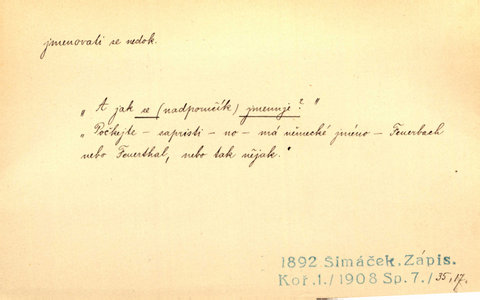 jmenovati se nedok.
„A jak se (nadporučík) jmenuje?"
„Počkejte – sapristi – no – má německé jméno – Feuerbach
nebo Feuerthal, nebo tak nějak."
1892 Šimáček. Zápis.
Koř.1./1908 Sp.7./35,17.